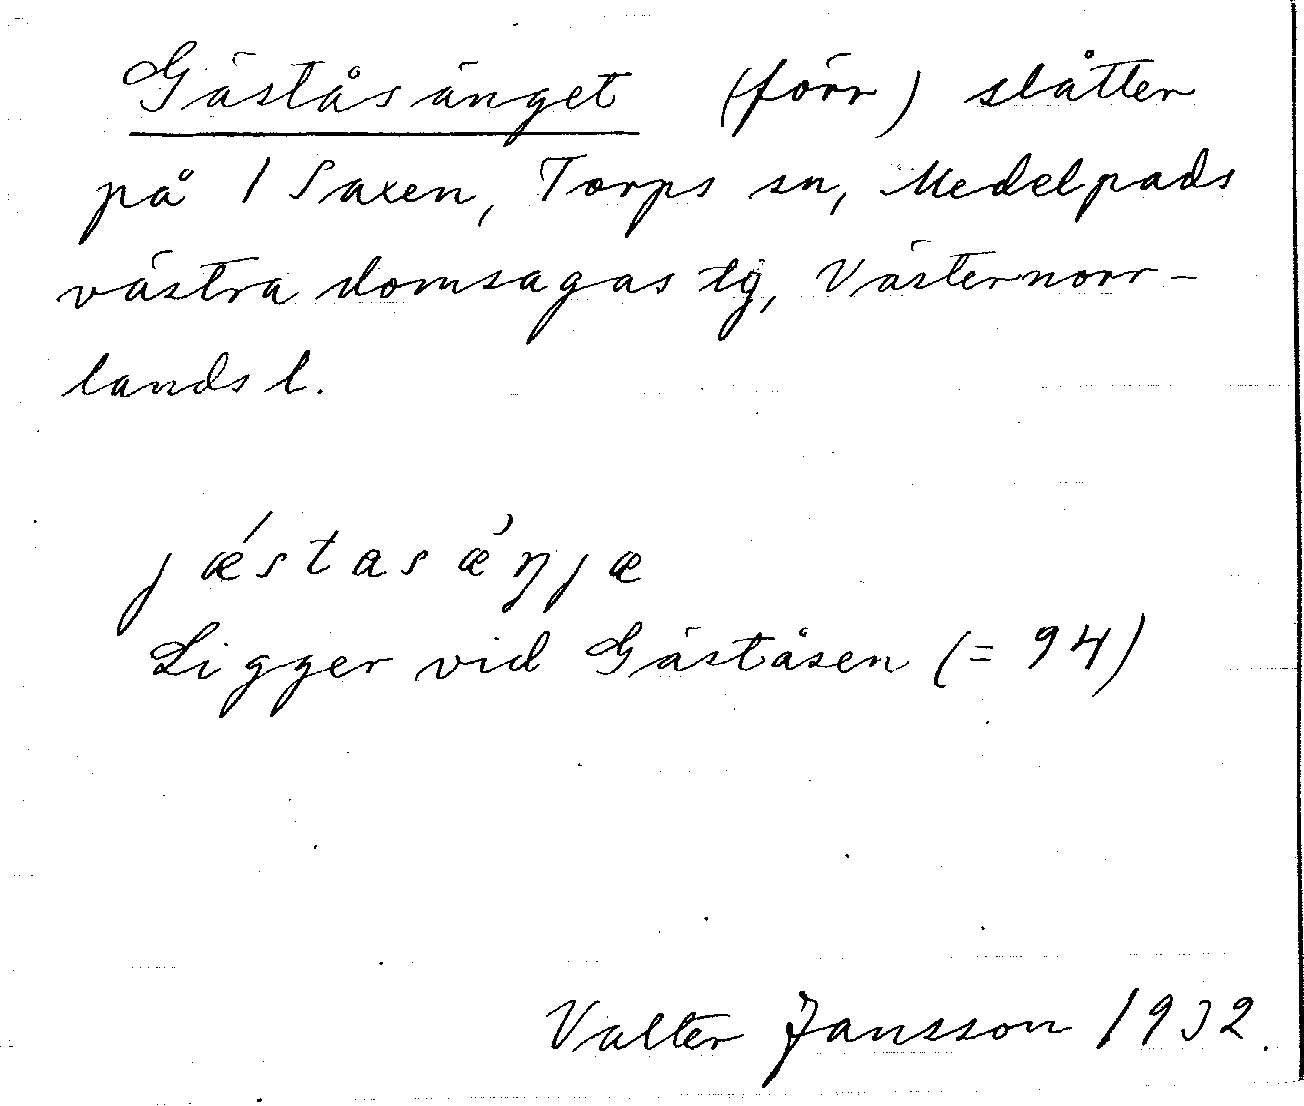 Gäståsänget (förr) slåtter
på 1 Saxen, Torps sn, Medelpads
västra domsagas tg, Västernorr-
lands l.
jǽstasǽŋjæ
Ligger vid Gäståsen (= 94)
Valter Jansson 1932.